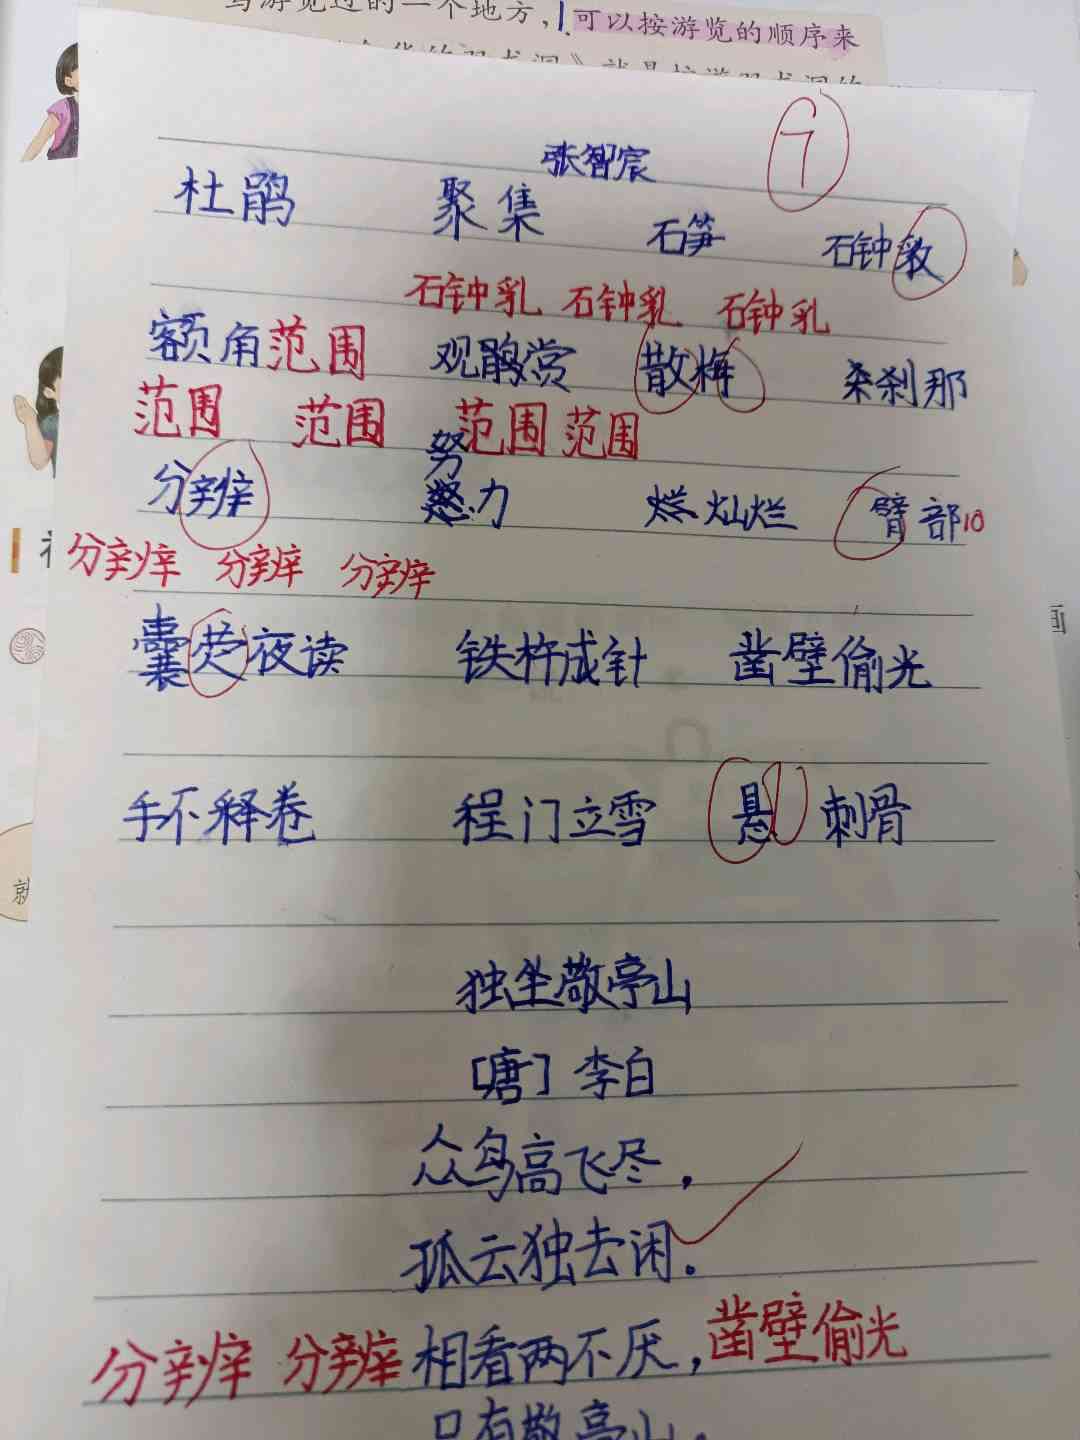 写游览过的一个地方，可以按游览的顺序来
张智宸 7
杜鹃 聚集 石笋 石钟敦
石钟乳 石钟乳 石钟乳
额角 范围 观赏 散梅 刹那
范围 范围 范围 范围
努
分辨 力 灿烂 臂部 10
分辨 分辨 分辨
囊荧夜读 铁杵成针 凿壁偷光
手不释卷 程门立雪 悬 刺骨
独坐敬亭山
[唐] 李白
众鸟高飞尽，
孤云独去闲。
分辨 分辨 相看两不厌，凿壁偷光
只有敬亭山。